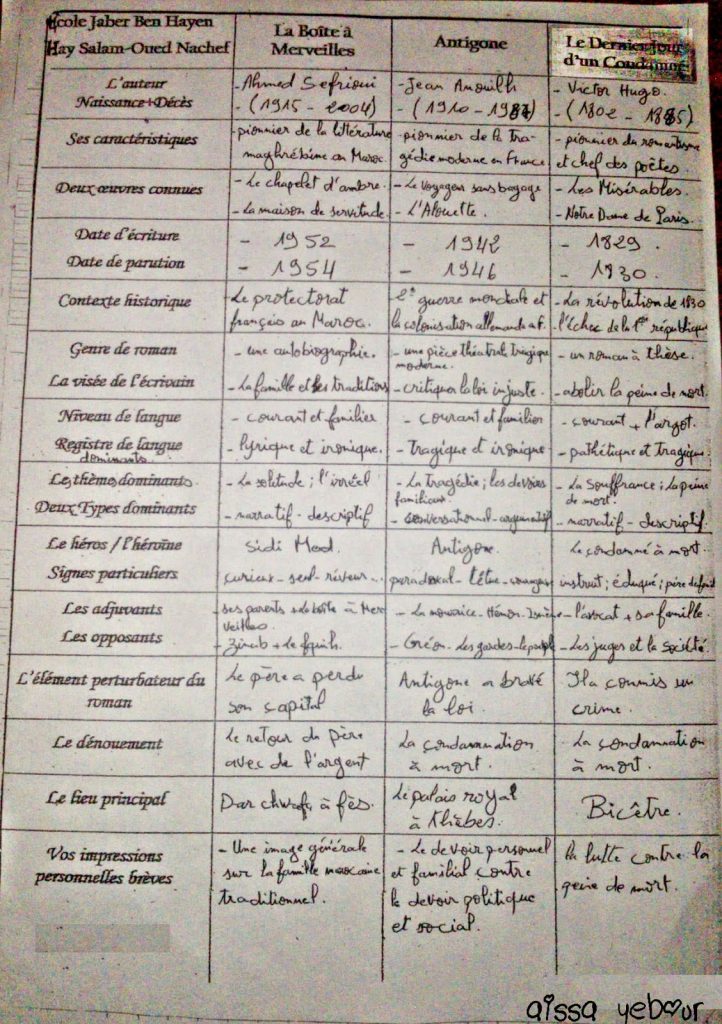 École Jaber Ben Hayen
Hay Salam-Oued Nachef
La Boîte à
Merveilles
Antigone
Le Dernier Jour
d'un Condamné
L'auteur
Naissance+Décès
- Ahmed Sefrioui
- (1915 - 2004)
- Jean Anouilh
- (1910 - 1987)
- Victor Hugo.
- (1802 - 1885)
Ses caractéristiques
- pionnier de la littérature
maghrébine au Maroc.
- pionnier de la tra-
gédie moderne en France
- pionnier du romantisme
et chef des poètes.
Deux œuvres connues
- Le chapelet d'ambre.
- La maison de servitude.
- Le voyageur sans bagage
- L'Alouette.
- Les Misérables.
- Notre Dame de Paris.
Date d'écriture
Date de parution
- 1952
- 1954
- 1942
- 1946
- 1829.
- 1830.
Contexte historique
- Le protectorat
français au Maroc.
2e guerre mondiale et
la colonisation allemande a F.
- La révolution de 1830
l'échec de la 1ère république
Genre de roman
La visée de l'écrivain
- une autobiographie.
- La famille et les traditions
- une pièce théatrale tragique
moderne.
- critiquer la loi injuste.
- un roman à thèse.
- abolir la peine de mort.
Niveau de langue
Registre de langue
dominants
- courant et familier
- lyrique et ironique.
- courant et familier
- Tragique et ironique
- courant + l'argot.
- pathétique et tragique.
Les thèmes dominants
Deux Types dominants
- La solitude ; l'irréel
- narratif - descriptif
- La tragédie ; les devoirs
familiaux.
- conversationnel - argumentatif
- La souffrance ; la peine
de mort.
- narratif - descriptif.
Le héros / l'héroïne
Signes particuliers
Sidi Med.
curieux - seul - rêveur...
Antigone.
paradoxal - têtue - courageuse
Le condamné à mort.
instruit ; éduqué ; père de famille
Les adjuvants
Les opposants
ses parents + la boîte à Mer
veilles
- Zineb + Le fquih.
- La nourrice - Hémon - Ismène
- Créon - Les gardes - le peuple
- l'avocat + sa famille.
- Les juges et la Société.
L'élément perturbateur du
roman
Le père a perdu
son capital
Antigone a bravé
la loi.
Il a commis un
crime.
Le dénouement
Le retour du père
avec de l'argent
La condamnation
à mort.
La condamnation
à mort.
Le lieu principal
Dar chwafa à fès.
Le palais royal
à thèbes.
Bicêtre.
Vos impressions
personnelles brèves
- Une image générale
sur la famille marocaine
traditionnel.
- Le devoir personnel
et familial contre
le devoir politique
et social.
la lutte contre la
peine de mort.
aissa yebour